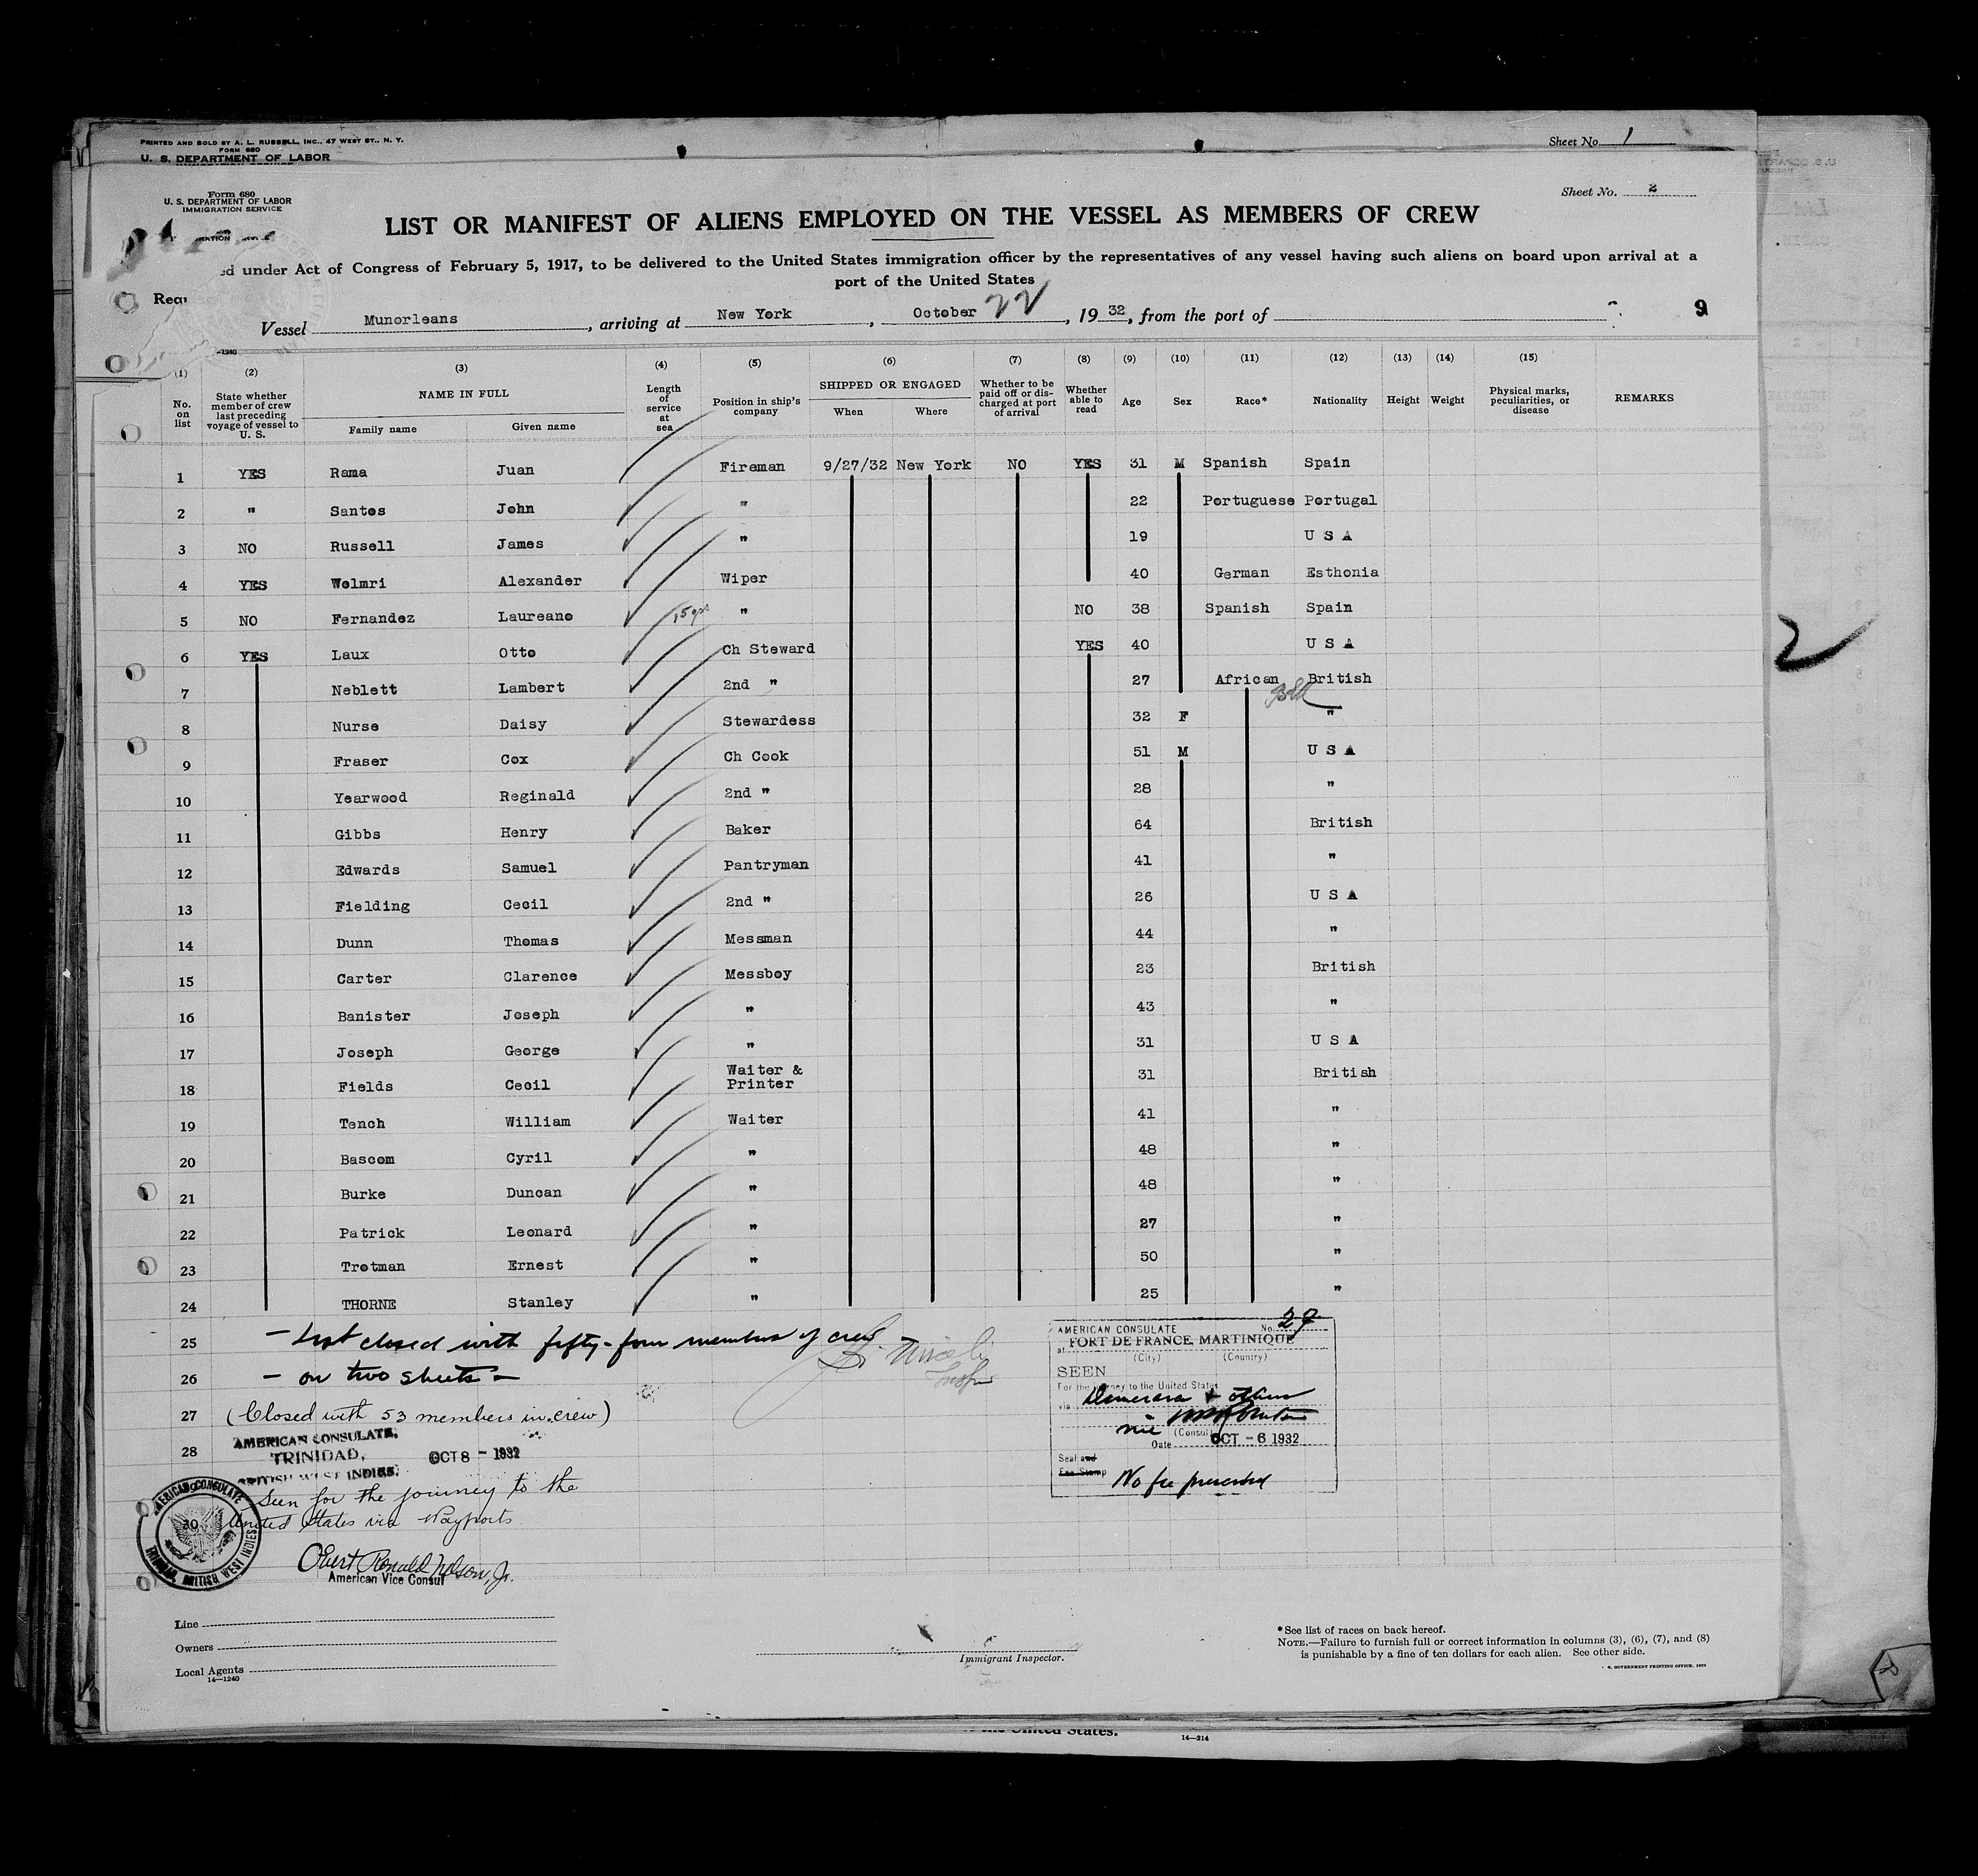 PRINTED AND SOLD BY A. L. RUSSELL, INC., 47 WEST ST., N. Y.
FORM 680
U. S. DEPARTMENT OF LABOR
Sheet No. 1
Form 680
U. S. DEPARTMENT OF LABOR
IMMIGRATION SERVICE
Sheet No. 2
LIST OR MANIFEST OF ALIENS EMPLOYED ON THE VESSEL AS MEMBERS OF CREW
under Act of Congress of February 5, 1917, to be delivered to the United States immigration officer by the representatives of any vessel having such aliens on board upon arrival at a
port of the United States
Vessel Munorleans, arriving at New York, October 22, 19 32, from the port of 9
(1) (2) (3) (4) (5) (6) (7) (8) (9) (10) (11) (12) (13) (14) (15)
No. on list State whether member of crew last preceding voyage of vessel to U. S. NAME IN FULL Family name Given name Length of service at sea Position in ship's company SHIPPED OR ENGAGED When Where Whether to be paid off or discharged at port of arrival Whether able to read Age Sex Race* Nationality Height Weight Physical marks, peculiarities, or disease REMARKS
1 YES Rama Juan Fireman 9/27/32 New York NO YES 31 M Spanish Spain
2 " Santos John " 22 Portuguese Portugal
3 NO Russell James " 19 U S A
4 YES Wolmri Alexander Wiper 40 German Esthonia
5 NO Fernandez Laureano 15 yrs " NO 38 Spanish Spain
6 YES Laux Otto Ch Steward YES 40 U S A
7 Neblett Lambert 2nd " 27 African British
8 Nurse Daisy Stewardess 32 F "
9 Fraser Cox Ch Cook 51 M U S A
10 Yearwood Reginald 2nd " 28 "
11 Gibbs Henry Baker 64 British
12 Edwards Samuel Pantryman 41 "
13 Fielding Cecil 2nd " 26 U S A
14 Dunn Thomas Messman 44 "
15 Carter Clarence Messboy 23 British
16 Banister Joseph " 43 "
17 Joseph George " 31 U S A
18 Fields Cecil Waiter & Printer 31 British
19 Tench William Waiter 41 "
20 Bascom Cyril " 48 "
21 Burke Duncan " 48 "
22 Patrick Leonard " 27 "
23 Trotman Ernest " 50 "
24 THORNE Stanley " 25 "
25 - List closed with fifty-four members of crew -
26 - on two sheets -
27 (Closed with 53 members in crew)
28
AMERICAN CONSULATE,
TRINIDAD,
BRITISH WEST INDIES.
OCT 8 - 1932
Seen for the journey to the
United States via Wayports
Obert Ronald Nelson, Jr.
American Vice Consul
AMERICAN CONSULATE
TRINIDAD, BRITISH WEST INDIES
30
AMERICAN CONSULATE No. 29
at FORT DE FRANCE, MARTINIQUE
(City) (Country)
SEEN
For the journey to the United States
via Demerara + others
(Consul)
Date OCT - 6 1932
Seal and
Fee Stamp No fee prescribed
Line
Owners
Local Agents
14—1240
Immigrant Inspector.
*See list of races on back hereof.
NOTE.—Failure to furnish full or correct information in columns (3), (6), (7), and (8)
is punishable by a fine of ten dollars for each alien. See other side.
the United States.
14—214
2